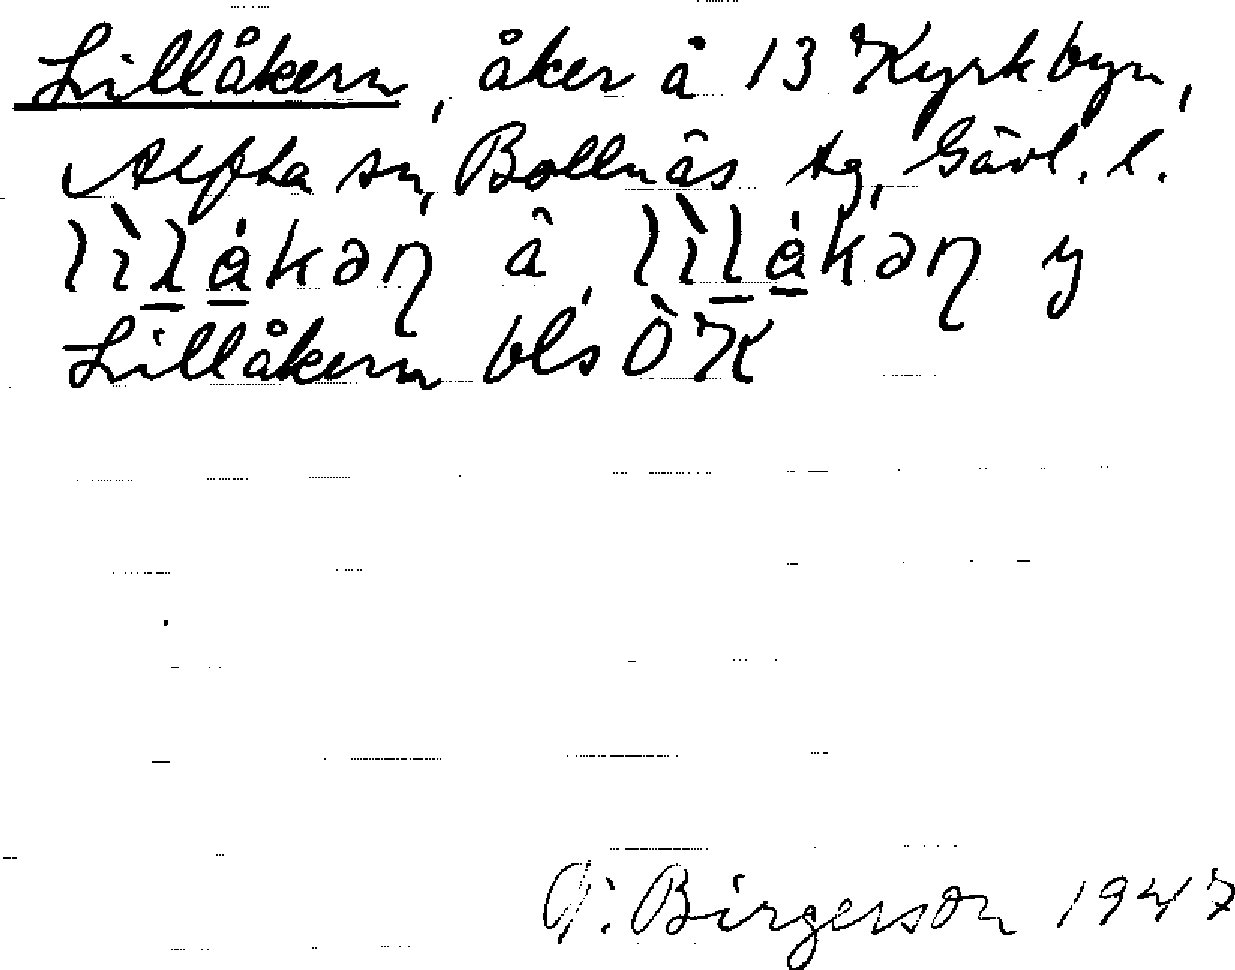 Lillåkern, åker å 13 Kyrkbyn,
Alfta sn, Bollnäs tg, Gävl. l.
Lillåkern bls ÖK
G. Birgerson 1947